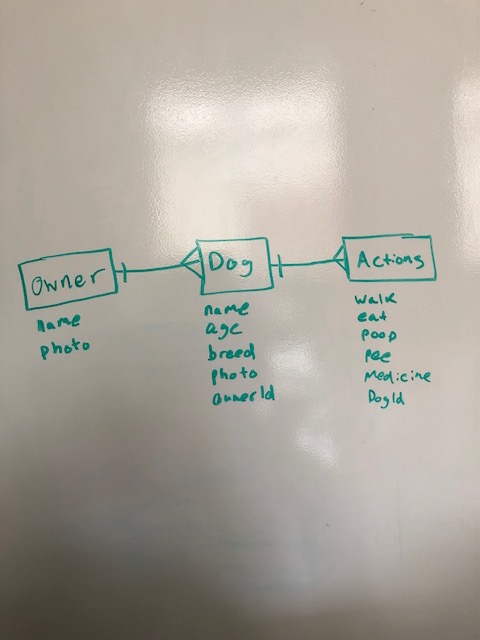 Owner
name
photo
Dog
name
age
breed
photo
ownerId
Actions
walk
eat
poop
pee
Medicine
DogId